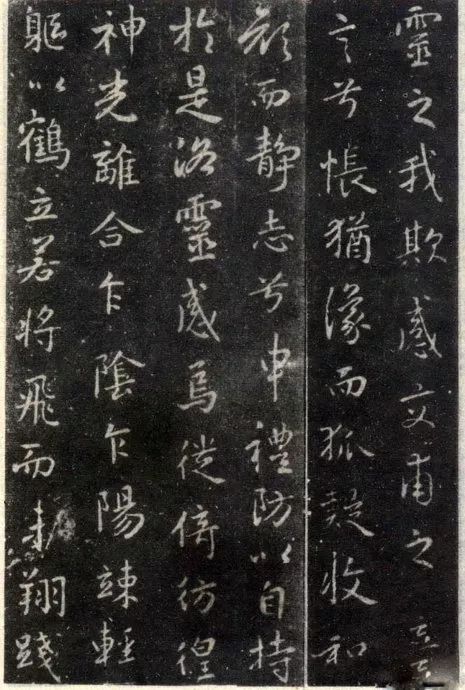 靈之我欺感交甫之
言兮悵猶豫而狐疑收和
顏而静志兮申禮防以自持
於是洛靈感焉徙倚彷徨
神光離合乍陰乍陽竦輕
軀以鶴立若將飛而未翔踐